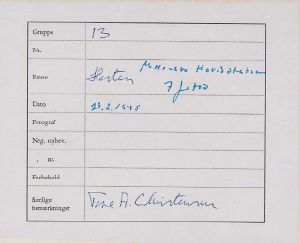 Gruppe 13
Nr.
Emne Horten Marinens Hovedstasjon
7 foto
Dato 23.2.1945
Fotograf
Neg. oppbev.
" nr.
Forbehold
Særlige
bemerkninger Tore A. Christensen